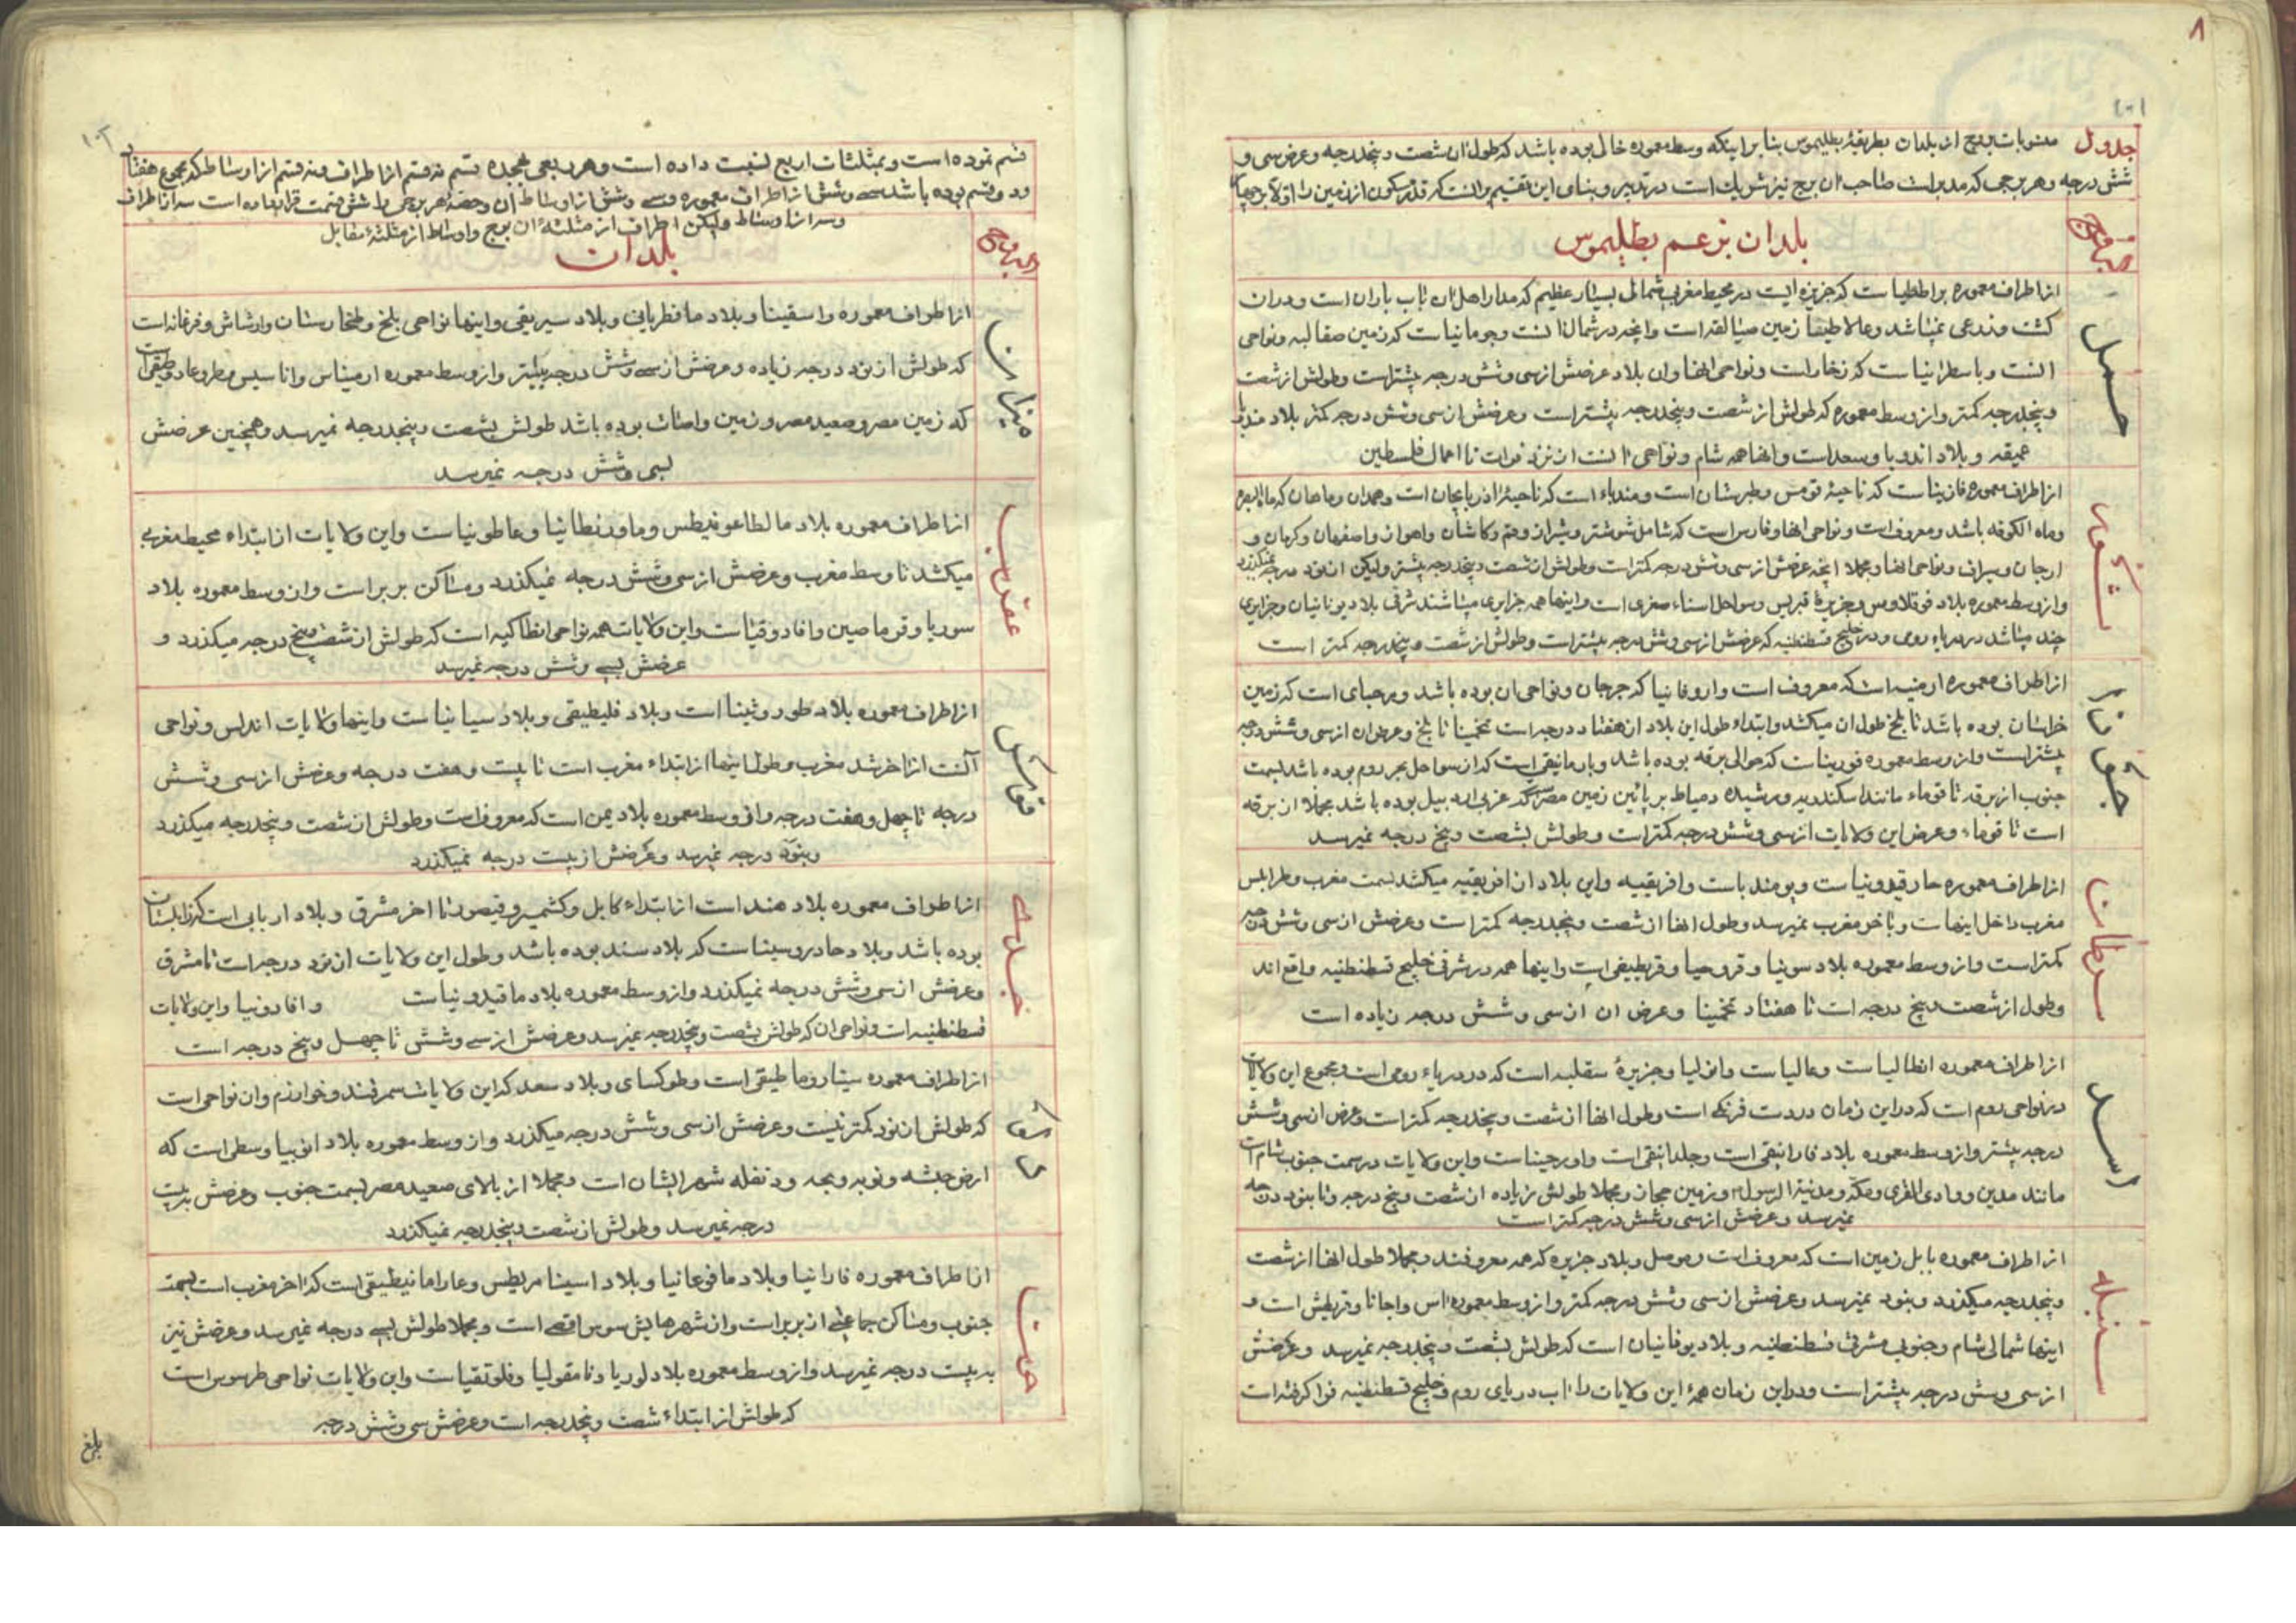 ۸
۱۰۱
جدول منسوبات بروج از بلدان بطریقهٔ بطلیموس بنا بر اینکه وسط معموره خالی بوده باشد که طول آن شصت و پنجدرجه و عرض سی و
شش درجه و هر برجی که مدبر است صاحب آن برج نیز شریک است در تدبیر و بنای این تقسیم بر آنست که قدر مسکون از زمین را اولا بر چهار
بلدان بزعم بطلیموس
حمل
از اطراف معموره براططیاست که جزیره ایست در محیط مغربی شمالی بسیار عظیم که مدار اهل آن بآب باران است و در آن
کشت و زرعی نمیباشد و عالاطیفا زمین صیالقه است و آنچه در شمال آنست وجومانیاست که زمین صقالبه و نواحی
آنست و باسطرانیاست که زخار است و نواحی آنها و این بلاد عرضش از سی و شش درجه بیشتر است و طولش از شصت
و پنجدرجه کمتر و از وسط معموره که طولش از شصت و پنجدرجه بیشتر است و عرضش از سی و شش درجه کمتر بلاد
عمیقه و بلاد اندوبا وسعد است و اینها همه شام و نواحی آنست از نزد فرات تا اعمال فلسطین
ثور
از اطراف معموره فازیناست که ناحیهٔ قومس و طبرستان است و مندیاء است که ناحیهٔ آذربایجان است و همدان و ماهان که ماه البصره
و ماه الکوفه باشد و معروف است و نواحی آنها و فارس است که شامل شوشتر و شیراز و قم و کاشان و اهواز و اصفهان و کرمان و
ارجان و سیراف و نواحی آنها و مجملا آنچه عرضش از سی و شش درجه کمتر است و طولش از شصت و پنجدرجه بیشتر ولیکن از نود درجه نمیگذرد
و از وسط معموره بلاد فوقلاوس و جزیرهٔ قبرس و سواحل اسیاء صغری است و اینها همه جزایری میباشند شرقی بلاد یونانیان و جزایری
چند میباشد در دریاء روم و در خلیج قسطنطنیه که عرضش از سی و شش درجه بیشتر است و طولش از شصت و پنجدرجه کمتر است
جوزا
از اطراف معموره ارمنیه است که معروف است و اروفانیا که جرجان و نواحی آن بوده باشد و برحبای است که زمین
خراسان بوده باشد تا بلخ طول آن میکشد و ابتداء طول این بلاد از هفتاد درجه است تخمینا تا بلخ و عرض آن از سی و شش درجه
بیشتر است و از وسط معموره قوریناست که حوالی برقه بوده باشد و بارمانیقی است که از سواحل بحر روم بوده باشد بسمت
جنوب از برقه تا قوماء مانند اسکندریه و رشیده و دمیاط بر پائین زمین مصر است که غربی اردبیل بوده باشد مجملا از برقه
است تا قوماء و عرض این ولایات از سی و شش درجه کمتر است و طولش بشصت و پنج درجه نمیرسد
سرطان
از اطراف معموره حارقیدونیاست و یومندیاست و افریقیه و این بلاد از افریقیه میکشد بسمت مغرب و طرابلس
مغرب داخل اینهاست و باخر مغرب نمیرسد و طول آنها از شصت و پنجدرجه کمتر است و عرضش از سی و شش درجه
کمتر است و از وسط معموره بلاد سونیا و قروحیا و قربطیقی است و اینها همه در شرقی خلیج قسطنطنیه واقع اند
و طول از شصت و پنج درجه است تا هفتاد تخمینا و عرض آن از سی و شش درجه زیاده است
اسد
از اطراف معموره انطالیاست و عالیاست و افولیا و جزیرهٔ سقلبه است که در دریاء روم است و مجموع این ولایات
در نواحی روم است که در این زمان در دست فرنگ است و طول آنها از شصت و پنجدرجه کمتر است و عرض از سی و شش
درجه بیشتر و از وسط معموره بلاد فارانیقی است و جلدانیقی است و اورحیناست و این ولایات در سمت جنوب شام است
مانند مدین و وادی القری و مکه و مدینة الرسول و زمین حجاز و مجملا طولش زیاده از شصت و پنج درجه و تا بنود درجه
نمیرسد و عرضش از سی و شش درجه کمتر است
سنبله
از اطراف معموره بابل زمین است که معروف است و موصل و بلاد جزیره که همه معروفند و مجملا طول آنها از شصت
و پنجدرجه میگذرد و بنود نمیرسد و عرضش از سی و شش درجه کمتر و از وسط معموره اس و اجانا و قریطش است و
اینها شمالی شام و جنوبی مشرقی قسطنطنیه و بلاد یونانیان است که طولش بشصت و پنجدرجه نمیرسد و عرضش
از سی و شش درجه بیشتر است و در این زمان همهٔ این ولایات را آب دریای روم و خلیج قسطنطنیه فرا گرفته است
۱۰۲
قسم نموده است و بمثلثات اربع نسبت داده است و هر ربعی هجده قسم نه قسم از اطراف و نه قسم از اوساط که مجموع هفتاد
و دو قسم بوده باشد سی و شش از اطراف معموره و سی و شش از اوساط آن و حصهٔ هر برجی را شش قسمت قرار داده است سه از اطراف
و سه از اوساط ولیکن اطراف از مثلثهٔ آن برج و اوساط از مثلثهٔ مقابل
بلدان
میزان
از اطراف معموره واسقینا و بلاد مافطریانی و بلاد سیریقی و اینها نواحی بلخ و طخارستان و از شاش و فرغانه است
که طولش از نود درجه زیاده و عرضش از سی و شش درجه بیشتر و از وسط معموره ارمیناس و اناسیس
که زمین مصر و صعید مصر و زمین واصات بوده باشد طولش بشصت و پنجدرجه نمیرسد و همچنین عرضش
بسی و شش درجه نمیرسد
عقرب
از اطراف معموره بلاد مالطاعوفیطس و ماورنطانیا و عاطونیاست و این ولایات از ابتداء محیط مغربی
میکشد تا وسط مغرب و عرضش از سی و شش درجه نمیگذرد و مساکن بربر است و از وسط معموره بلاد
سوریا و قرماصین و افادوقیاست و این ولایات همه نواحی انطاکیه است که طولش از شصت و پنج درجه میگذرد و
عرضش بسی و شش درجه نمیرسد
قوس
از اطراف معموره بلاد طوروثینا است و بلاد فلیطیقی و بلاد سیانیاست و اینها ولایات اندلس و نواحی
آنست از آخر شد مغرب و طول اینها از ابتداء مغرب است تا بیست و هفت درجه و عرضش از سی و شش
درجه تا چهل و هفت درجه و از وسط معموره بلاد یمن است که معروف است و طولش از شصت و پنجدرجه میگذرد
و بنود درجه نمیرسد و عرضش از بیست درجه نمیگذرد
جدی
از اطراف معموره بلاد هند است از ابتداء کابل و کشمیر و قیصور تا آخر مشرق و بلاد اریانی است که زابلستان
بوده باشد و بلاد حادروسیناست که بلاد سند بوده باشد و طول این ولایات از نود درجه است تا مشرق
و عرضش از سی و شش درجه نمیگذرد و از وسط معموره بلاد ماقیدونیاست و افادونیا و این ولایات
قسطنطنیه است و نواحی آن که طولش بشصت و پنجدرجه نمیرسد و عرضش از سی و شش تا چهل و پنج درجه است
دلو
از اطراف معموره سیناروماطیقی است و طوکسای و بلاد سعد که این ولایات سمرقند و خوارزم و آن نواحی است
که طولش از نود کمتر نیست و عرضش از سی و شش درجه میگذرد و از وسط معموره بلاد انوبیا وسطی است که
ارض حبشه و نوبه و بجه و دنقله شهر ایشان است و مجملا از بالای صعید مصر بسمت جنوب و عرضش به بیست
درجه نمیرسد و طولش از شصت و پنجدرجه نمیگذرد
حوت
از اطراف معموره فارانیا و بلاد مافوعانیا و بلاد اسینا مریطس و عارامانیطیقی است که آخر مغرب است بسمت
جنوب و مساکن جماعتی از بربر است و از شهرهایش سوس اقصی است و مجملا طولش بسی درجه نمیرسد و عرضش نیز
به بیست درجه نمیرسد و از وسط معموره بلاد لوریا و نامقولیا و فلوتقیاست و این ولایات نواحی طرسوس است
که طولش از ابتداء شصت و پنجدرجه است و عرضش سی و شش درجه
بلغ